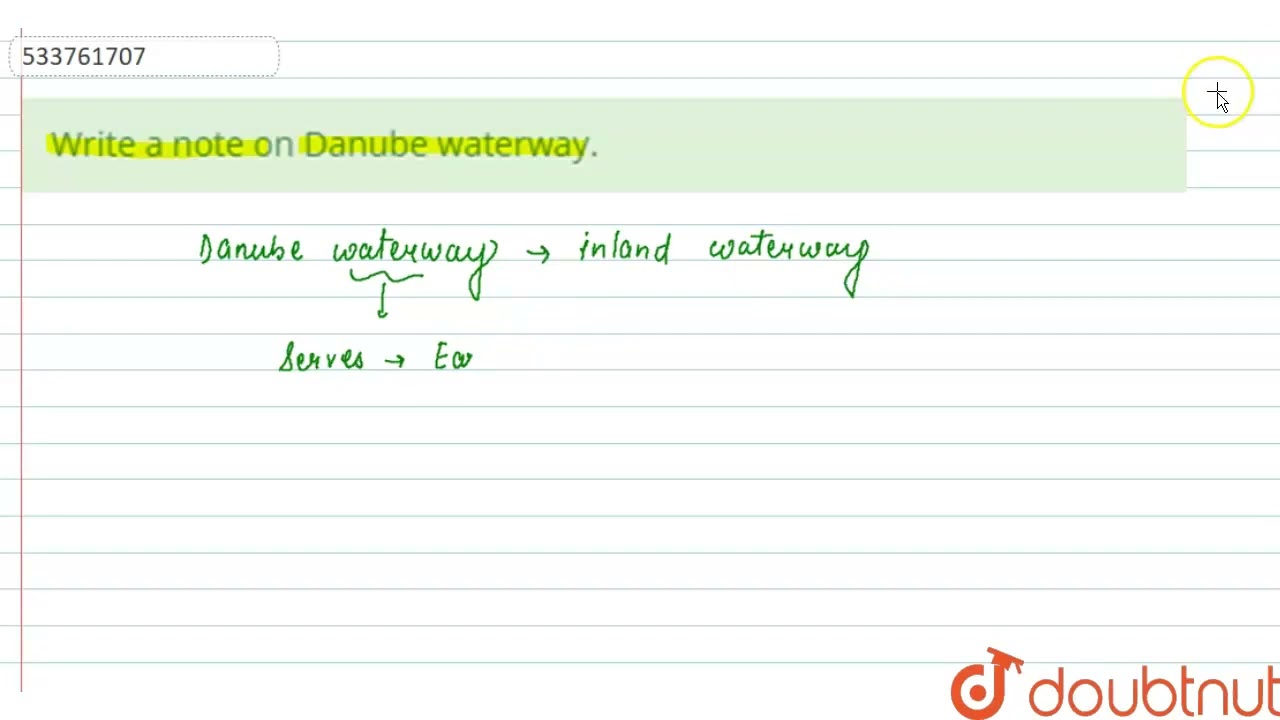 533761707
Write a note on Danube waterway.
Danube waterway → inland waterway
Serves → Ea
doubtnut